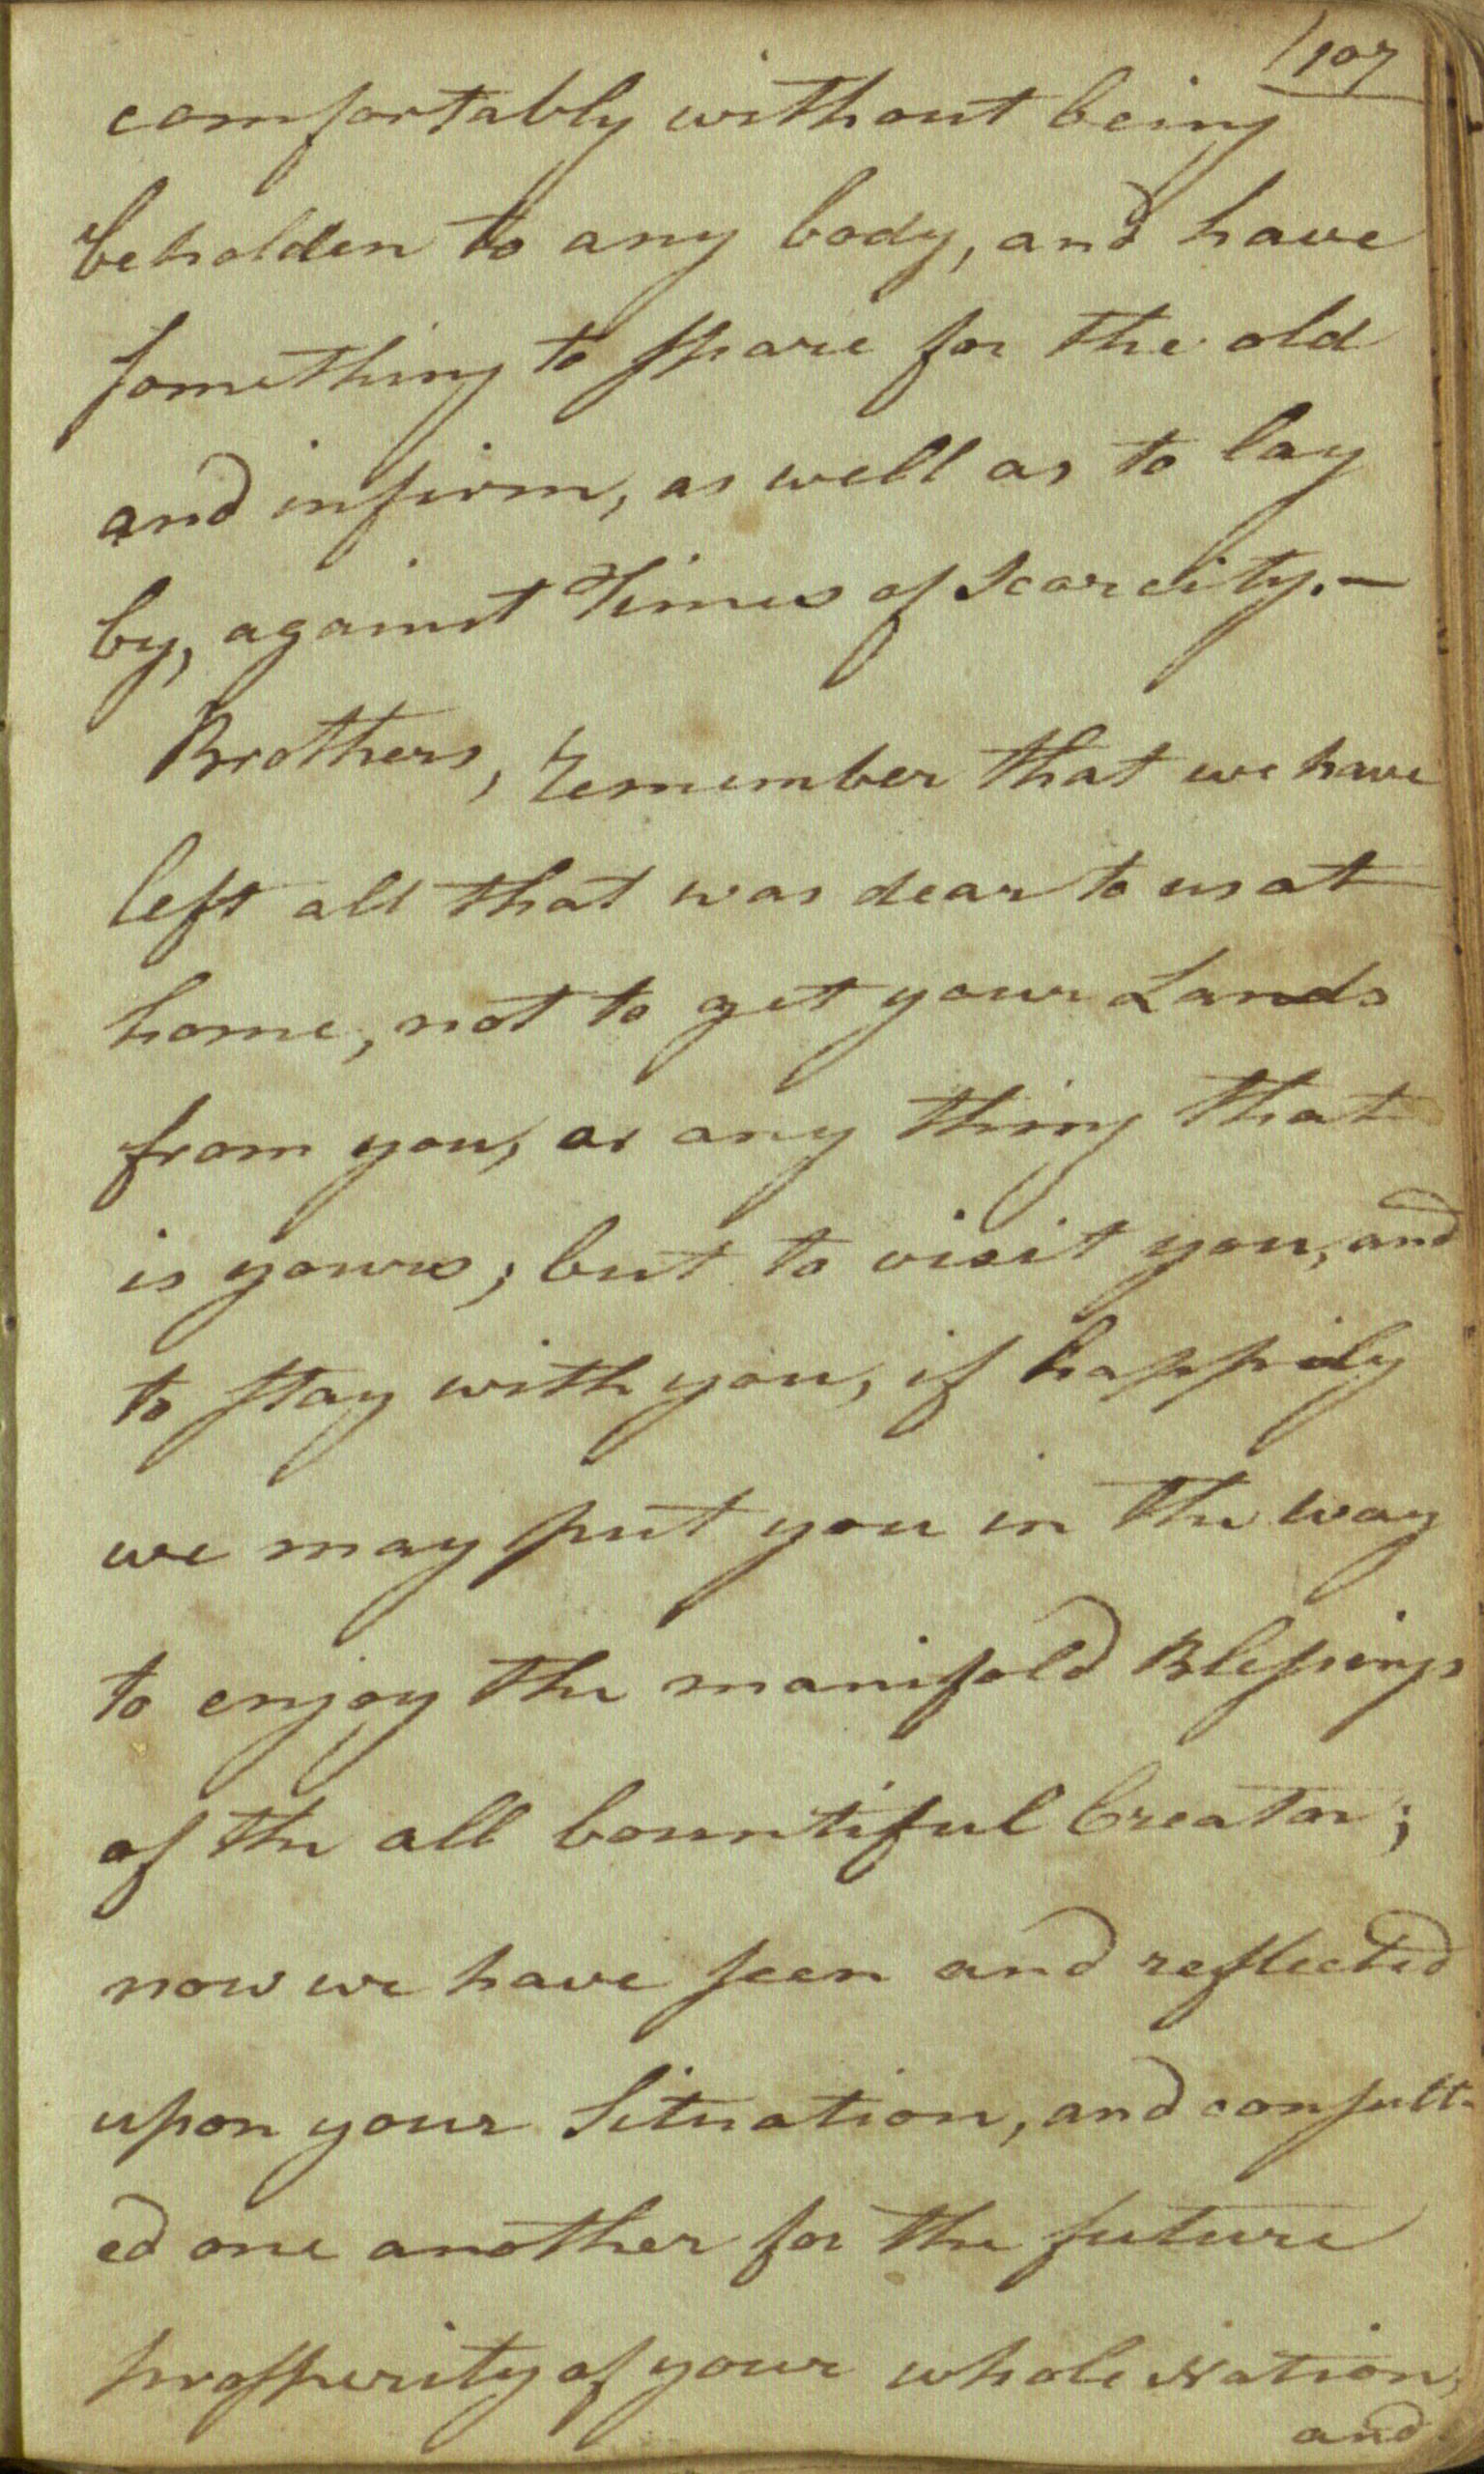 107
comfortably without being
beholden to any body, and have
something to spare for the old
and infirm, as well as to lay
by, against Times of Scarcity.—
Brothers, remember that we have
left all that was dear to us at
home, not to get your Lands
from you, or any thing that
is yours; but to visit you, and
to stay with you, if happily
we may put you in the way
to enjoy the manifold Blessings
of the all bountiful Creator;
now we have seen and reflected
upon your Situation, and consult-
ed one another for the future
prosperity of your whole Nation,
and